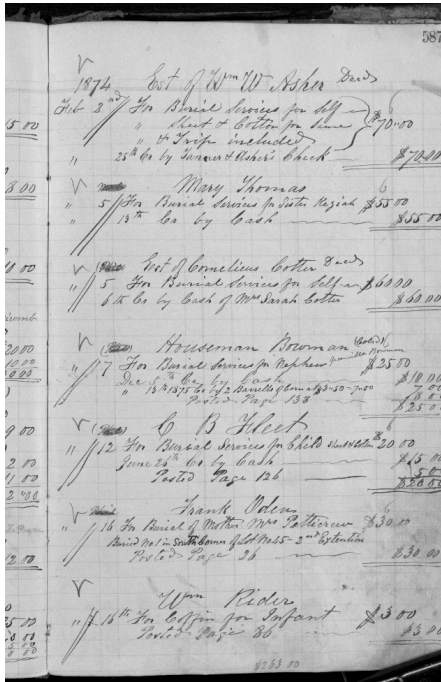 587
1874 Est of Wm W Asher Decd
Feb 2nd For Burial Services for Self
" Sheet & Cotton for Same $70.00
" & Trip included
" 25th Cr by Tanner & Asher's Check $70.00
Mary Thomas
" 5 For Burial Services for Sister Keziah $55.00
" 13th Cr by Cash $55.00
Est of Cornelious Cotter Decd
" 5 For Burial Services for Self $60.00
6th Cr by Cash of Mrs Sarah Cotter $60.00
Houseman Bowman (Cold)
" 7 For Burial Services for Nephew Bowman $25.00
Dec 5th Cr by Cash $10.00
" 13th 1875 Cr by 2 Barrells of 3-50 - 7.00 7.00
Posted Page 138 8.00
$25.00
C B Fleet
" 12 For Burial Services for Child Sheet & Cotton $20.00
June 25th Cr by Cash $15.00
Posted Page 126 5.00
$20.00
Frank Odens
" 16 For Burial of Mother Mrs Petticrew $30.00
Buried No 1 in South Corner of Lot No 45 - 2nd Extention
Posted Page 26 $30.00
Wm Rider
" 18th For Coffin for Infant $3.00
Posted Page 86 $3.00
$263.00